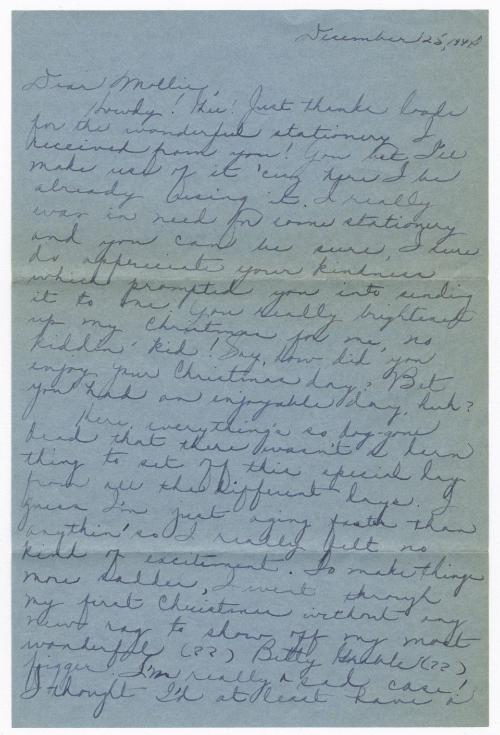 December 25, 1942
Dear Mollie,
Howdy! Hie! Just thanks loads
for the wonderful stationery I
received from you! You bet, I'll
make use of it 'cuz here I be
already using it. I really
was in need for some stationery
and you can be sure, I sure
do appreciate your kindness
which prompted you into sending
it to me. You really brightened
up my Christmas for me, no
kiddin' kid! Say, how did you
enjoy your Christmas day? Bet
you had an enjoyable day, huh?
Here, everything's so dog-gone
dead that there wasn't a darn
thing to set off this special day
from all the different days. I
guess I'm just aging faster than
anythin' so I really felt no
kind of excitement. To make things
more sadder, I went through
my first Christmas without any
new rag to show off my most
wonderful (??) Betty Grable (??)
figger. I'm really a sad case!
I thought I'd at least have a